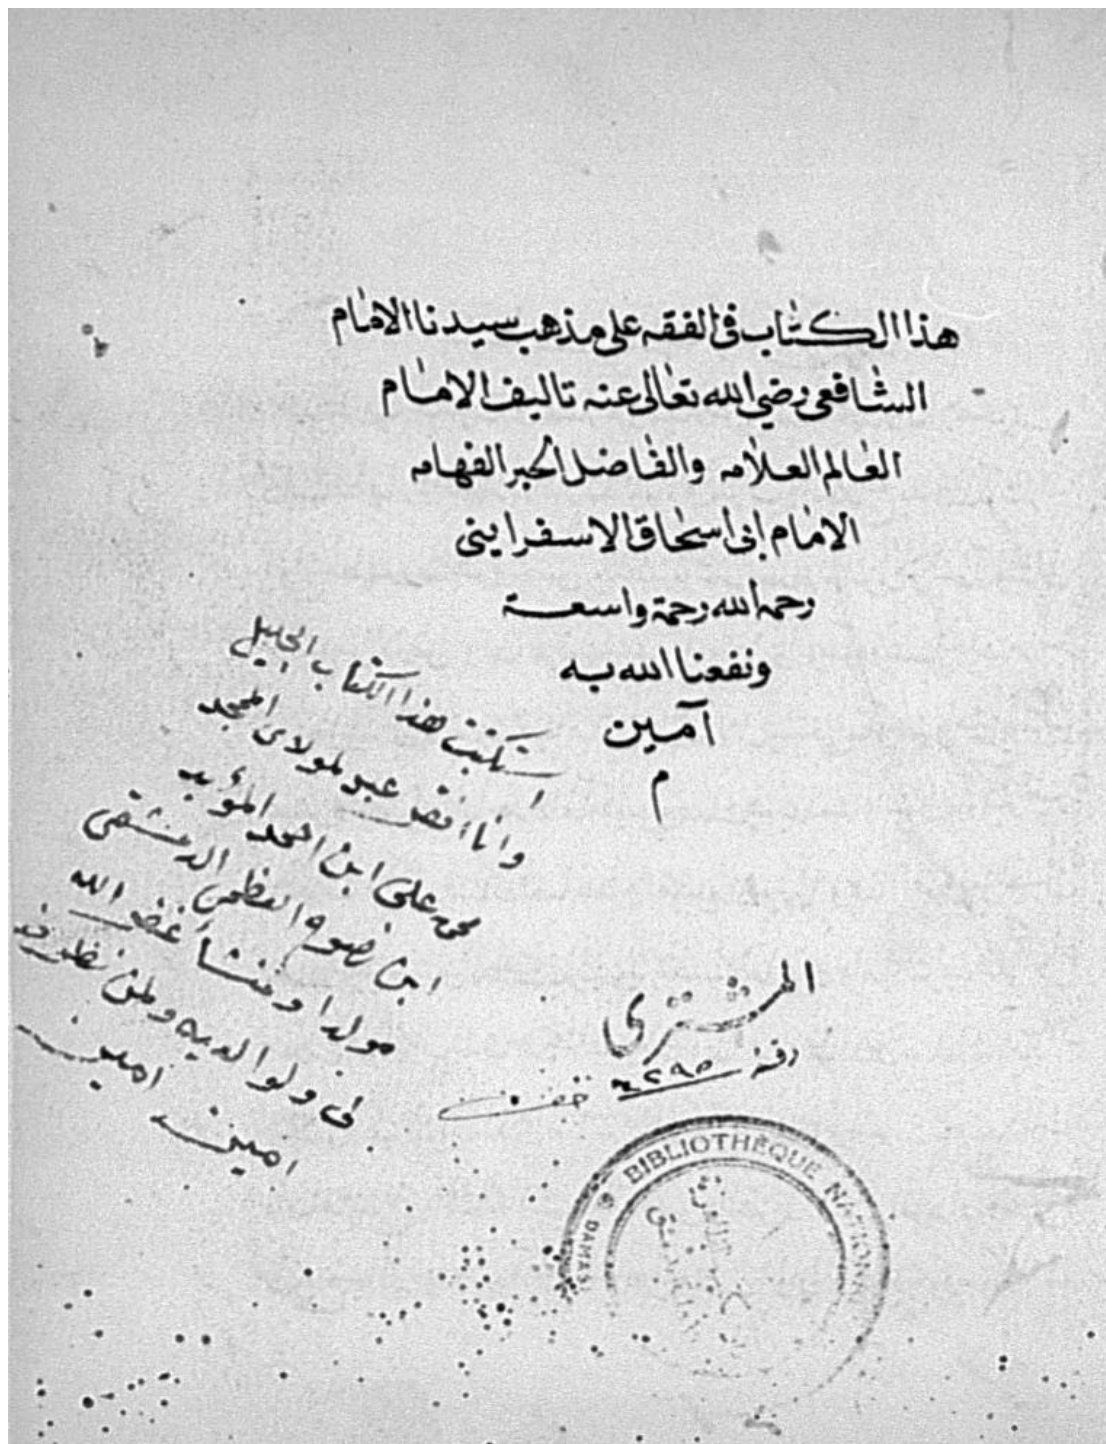 هذا الكتاب فى الفقه على مذهب سيدنا الامام
الشافعى رضي الله تعالى عنه تاليف الامام
العالم العلامه والفاضل الحبر الفهامه
الامام ابى اسحاق الاسفراينى
رحمه الله رحمة واسعة
ونفعنا الله به
آمين
م
استكتبت هذا الكتاب الجليل
وانا افقر عبد لمولاى الممجد
محمد على ابن السيد المؤيد
ابن العظمى الدمشقى
مولدا ومنشأ غفر الله
لى ولوالديه ولمن نظر فيه
امين امين
المشترى
٢٩٥
BIBLIOTHÈQUE NATIONALE
DAMAS